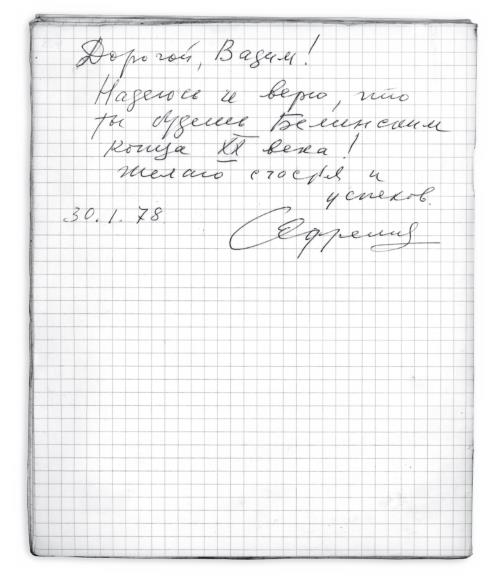 Дорогой, Вадим!
Надеюсь и верю, что
ты будешь Белинским
конца XX века!
Желаю счастья и
успехов.
30.1.78